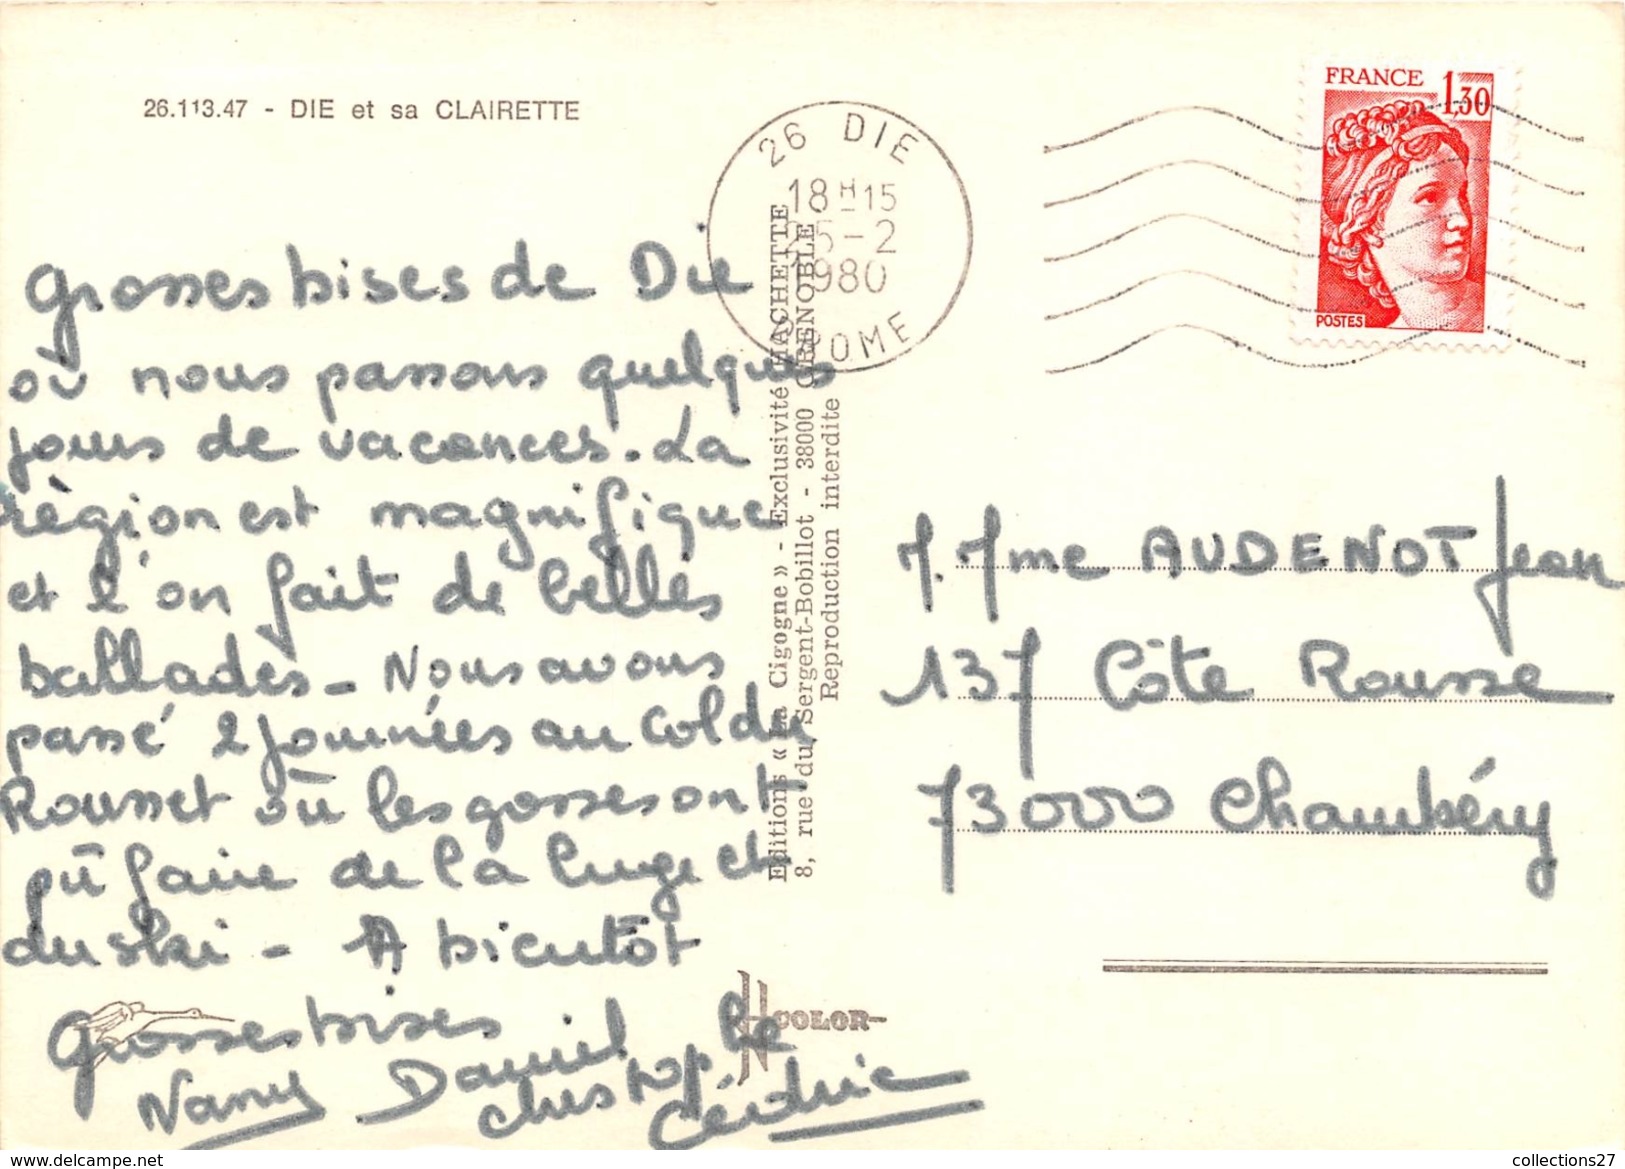 26.113.47 - DIE et sa CLAIRETTE
26 DIE
18H15
25-2
1980
DROME
FRANCE 1,30
POSTES
Grosses bises de Die
où nous passons quelques
jours de vacances. La
région est magnifique
et l'on fait de belles
ballades - Nous avons
passé 2 journées au Col du
Rousset où les gosses ont
pû faire de la luge et
du ski - A bientôt
Grosses bises
Nany Daniel
Christophe
Cédric
Editions « La Cigogne » - Exclusivité HACHETTE
8, rue du Sergent-Bobillot - 38000 GRENOBLE
Reproduction interdite
COLOR
M. Mme AUDENOT Jean
137 Côte Rousse
73000 Chambéry
collections27